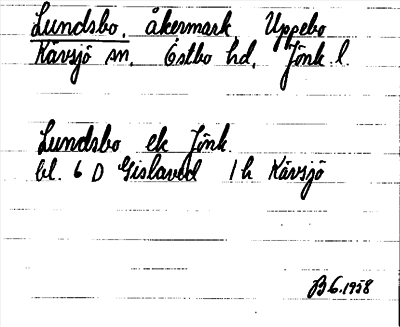 Lundsbo, åkermark, Uppebo
Kävsjö sn, Östbo hd, Jönk l.
Lundsbo ek Jönk.
bl. 6 D Gislaved 1 h Kävsjö
B 6.1958